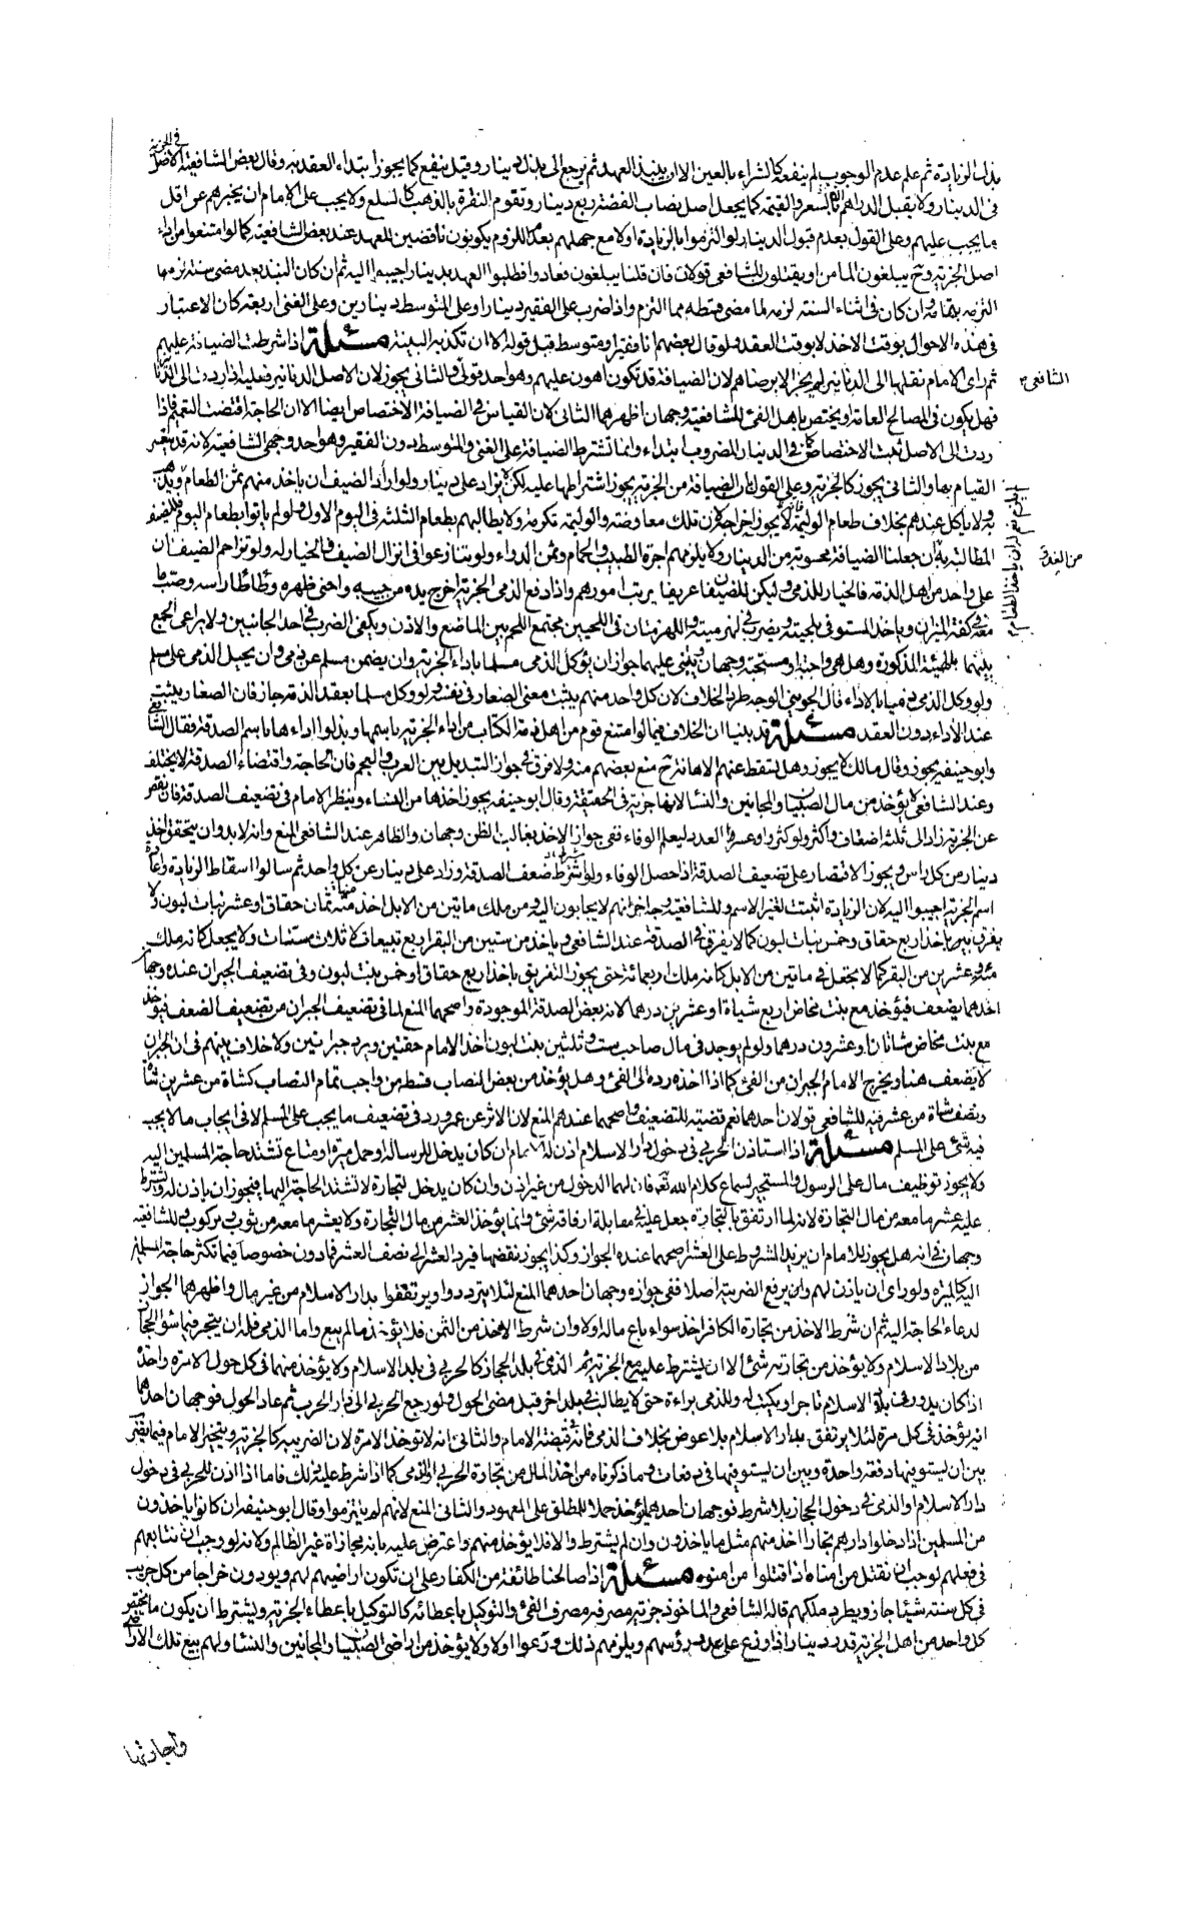 بذلت الزيادة ثم علم عدم الوجوب لم ينفعه كالشراء بالغبن الا ان ينبذ العهد ثم يرجع الى بذل دينار وقيل ينفع كما يجوز ابتداء العقد به وقال بعض الشافعية الاصل في الجزية
في الدينار ولا يقبل الدراهم الا بالسعر والقيمة كما يجعل اصل نصاب الفضة ربع دينار وتقوم النقرة بالذهب كالسلع ولا يجب على الامام ان يخبرهم عن اقل
ما يجب عليهم وعلى القول بعدم قبول الدينار لو التزموا بالزيادة اولا مع جهلهم بعدم اللزوم يكونون ناقضين للعهد عند بعض الشافعية كما لو امتنعوا من اداء
اصل الجزية وح يبلغون المامن او يقتلون للشافعي قولان فان قلنا يبلغون فعادوا فطلبوا العهد بدينار اجيبوا اليه ثم ان كان النبذ بعد مضي سنة لزمها
التزمه بتمامه وان كان في اثناء السنة لزمه لما مضى قسطه مما التزم واذا ضرب على الفقير دينارا وعلى المتوسط دينارين وعلى الغني اربعة كان الاعتبار
في هذه الاحوال بوقت الاخذ لا بوقت العقد ولو قال بعضهم انا فقير او متوسط قبل قوله الا ان تكذبه البينة مسئلة اذا شرطت الضيافة عليهم
ثم راى الامام نقلها الى الدنانير لم يجز الا برضاهم لان الضيافة قد تكون اهون عليهم وهو احد قولي الشافعي والثاني يجوز لان الاصل الدنانير فعليه اذا ردت الى الدنانير
فهل يكون في المصالح العامة او يختص باهل الفئ للشافعية وجهان اظهرهما الثاني لان القياس في الضيافة الاختصاص ايضا الا ان الحاجة اقتضت التعميم فاذا
ردت الى الاصل ثبت الاختصاص كما في الدينار المضروب ابتداء وانما تشترط الضيافة على الغني والمتوسط دون الفقير وهو احد وجهي الشافعية لانه قد يتعسر
القيام بها والثاني يجوز كالجزية وعلى القول بان الضيافة من الجزية يجوز اشتراطها عليه لكن لا يزاد على دينار ولو اراد الضيف ان ياخذ منهم ثمن الطعام
ولا ياكل عندهم بخلاف طعام الوليمة لا يجوز اخراجه لان تلك معاوضة والوليمة تكرمة ولا يطالبهم بطعام الثلثة في اليوم الاول ولو لم ياتوا بطعام اليوم فللضيف
المطالبة به من الغد ان جعلنا الضيافة محسوبة من الدينار ولا يلزمهم اجرة الطبيب والحمام وثمن الدواء ولو تنازعوا في انزال الضيف فالخيار له ولو تزاحم الضيفان
على واحد من اهل الذمة فالخيار للذمي وليكن للضيفان عريف يرتب امورهم واذا دفع الذمي الجزية اخرج يده من جيبه واحنى ظهره وطأطأ راسه وصب ما
معه في كفة الميزان وياخذ المستوفي بلحيته ويضرب في لهزمتيه واللهزمتان في اللحيين مجتمع اللحم بين الماضغ والاذن ويكفي الضرب في احد الجانبين ولا يراعى الجمع
بينهما بالهيئة المذكورة وهل هي واجبة او مستحبة وجهان وينبني عليهما جواز ان يوكل الذمي مسلما باداء الجزية وان يضمن مسلم عن ذمي وان يحيل الذمي على مسلم
ولو وكل الذمي ذميا بالاداء قال الجويني الوجه طرد الخلاف لان كل واحد منهم يثبت معنى الصغار في نفسه ولو وكل مسلما بعقد الذمة جاز فان الصغار يثبت
عند الاداء دون العقد مسئلة قد بينا ان الخلاف فيما لو امتنع قوم من اهل ذمة الكتاب من اداء الجزية باسمها وبذلوا اداءها باسم الصدقة فقال الشافعي
وابو حنيفة يجوز وقال مالك لا يجوز وهل يسقط عنهم الاهانة ح منع بعضهم منه ولا فرق في جواز التبديل بين العرب والعجم فان الحاجة واقتضاء الصدقة لا يختلف
وعند الشافعي لا يؤخذ من مال الصبيان والمجانين والنساء لانها جزية في الحقيقة وقال ابو حنيفة يجوز اخذها من النساء وينظر الامام في تضعيف الصدقة فان نقص
عن الجزية زاد الى ثلثة اضعاف واكثر ولو كثروا وعسر العدد ليعلم الوفاء ففي جواز الاخذ بغالب الظن وجهان والظاهر عند الشافعي المنع وانه لا بد وان يتحقق اخذ
دينار من كل راس ويجوز الاقتصار على تضعيف الصدقة اذا حصل الوفاء ولو شرط ضعف الصدقة وزاد على دينار عن كل واحد ثم سالوا اسقاط الزيادة واعادة
اسم الجزية اجيبوا اليه لان الزيادة اثبتت لتغير الاسم وللشافعية وجه اخر انهم لا يجابون اليه ومن ملك ماتين من الابل اخذ منه ثمان حقاق او عشر بنات لبون ولا
يفرق بينهما باخذ اربع حقاق وخمس بنات لبون كما لا يفرق في الصدقة عند الشافعي وياخذ من ستين من البقر اربع تبيعات لا ثلاث مسنات ولا يجعل كانه ملك
مائة وعشرين من البقر كما لا يجعل في ماتين من الابل كانه ملك اربعمائة حتى يجوز التفريق باخذ اربع حقاق او خمس بنت لبون وفي تضعيف الجبران عنده وجهان
احدهما يضعف فيؤخذ مع بنت مخاض اربع شياة او عشرين درهما لانه بعض الصدقة الموجودة واصحهما المنع لما في تضعيف الجبران من تضعيف الضعف فيؤخذ
مع بنت مخاض شاتان او عشرون درهما ولو لم يوجد في مال صاحب ست وثلثين بنت لبون اخذ الامام حقتين ويرد جبرانين ولا خلاف بينهم في ان الجبران
لا يضعف هنا ويخرج الامام الجبران من الفئ كما اذا اخذه رده الى الفئ وهل يؤخذ من بعض النصاب قسط من واجب تمام النصاب كشاة من عشرين شاة
ونصف شاة من عشر فيه للشافعي قولان احدهما نعم قضية للتضعيف واصحهما عندهم المنع لان الاثر عن عمر ورد في تضعيف ما يجب على المسلم لا في ايجاب ما لا يجب
فيه شئ على المسلم مسئلة اذا استاذن الحربي في دخول دار الاسلام اذن له الامام ان كان يدخل للرسالة او حمل ميرة او متاع تشتد حاجة المسلمين اليه
ولا يجوز توظيف مال على الرسول والمستجير لسماع كلام الله تعه فان لهما الدخول من غير اذن وان كان يدخل لتجارة لا تشتد الحاجة اليها فيجوز ان ياذن له ويشترط
عليه عشر ما معه من مال التجارة لانه لما ارتفق بالتجارة جعل عليه في مقابلة ارفاقه شئ وانما يؤخذ العشر من مال التجارة ولا يعشر ما معه من ثوب ومركوب وللشافعية
وجهان في انه هل يجوز للامام ان يزيد المشروط على العشر اصحهما عنده الجواز وكذا يجوز نقصها فيرد العشر الى نصف العشر فما دون خصوصا فيما تكثر حاجة المسلمين
اليه كالميرة ولو راى ان ياذن لهم وان يرفع الضريبة اصلا ففي جوازه وجهان احدهما المنع لئلا يترددوا ويرتفقوا بدار الاسلام من غير مال واظهرهما الجواز
لدعاء الحاجة اليه ثم ان شرط الاخذ من تجارة الكافر اخذ سواء باع ماله او لا وان شرط الاخذ من الثمن فلا يؤخذ ما لم يبع واما الذمي فله ان يتجر فيما سوى الحجاز
من بلاد الاسلام ولا يؤخذ من تجارته شئ الا ان يشترط عليه مع الجزية ثم الذمي في بلد الحجاز كالحربي في بلد الاسلام ولا يؤخذ منهما في كل حول الا مرة واحدة
اذا كان يدور في بلاد الاسلام تاجرا ويكتب له وللذمي براءة حتى لا يطالب في بلد اخر قبل مضي الحول ولو رجع الحربي الى دار الحرب ثم عاد الحول فوجهان احدهما
انه يؤخذ في كل مرة لئلا يرتفق بدار الاسلام بلا عوض بخلاف الذمي فانه في قبضة الامام والثاني انه لا توخذ الا مرة لان الضريبة كالجزية ويتخير الامام فيما يقرر
بين ان يستوفيها دفعة واحدة وبين ان يستوفيها في دفعات وما ذكرناه من اخذ المال من تجارة الحربي او الذمي كما اذا شرط عليه ذلك فاما اذا اذن للحربي في دخول
دار الاسلام او الذمي في دخول الحجاز بلا شرط فوجهان احدهما يؤخذ حملا للمطلق على المعهود والثاني المنع لانهم لم يلتزموا وقال ابو حنيفة ان كانوا ياخذون
من المسلمين اذا دخلوا دارهم تجارا اخذ منهم مثل ما ياخذون وان لم يشترط والا فلا يؤخذ منهم واعترض عليه بانه مجازاة غير الظالم ولانه لو وجب ان نتابعهم
في فعلهم لوجب ان نقتل من امناه اذا قتلوا من امنوه مسئلة اذا صالحنا طائفة من الكفار على ان تكون اراضيهم لهم ويودون خراجا من كل جريب
في كل سنة شيئا جاز ويطرد ملكهم قاله الشافعي والماخوذ جزية مصرفه مصرف الفئ والتوكيل باعطائه كالتوكيل باعطاء الجزية ويشترط ان يكون ما يخص
كل واحد من اهل الجزية قدر دينار اذا وزع على عدد رؤسهم ويلزمهم ذلك زرعوا او لا ولا يؤخذ من اراضي الصبيان والمجانين والنساء ولهم بيع تلك الاراضي
الشافعي
من الغد
واجارتها